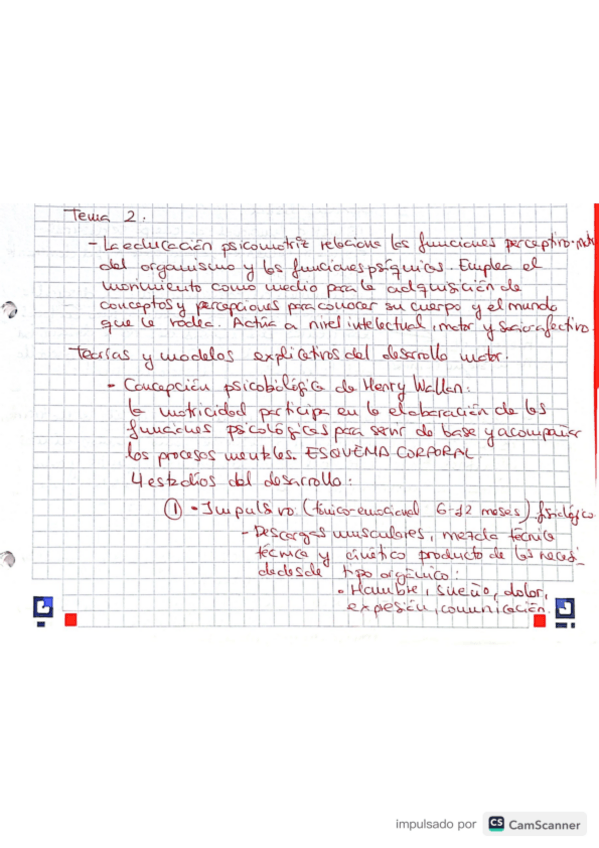 Tema 2.
- La educación psicomotriz relaciona las funciones perceptivo-mot
del organismo y las funciones psíquicas. Emplea el
movimiento como medio para la adquisición de
conceptos y percepciones para conocer su cuerpo y el mundo
que le rodea. Actúa a nivel intelectual, motor y socioafectivo.
Teorías y modelos explicativos del desarrollo motor.
- Concepción psicobiológica de Henry Wallon:
la motricidad participa en la elaboración de las
funciones psicológicas para servir de base y acompañar
los procesos mentales. ESQUEMA CORPORAL
4 estadios del desarrollo:
① • Impulsivo (tónico-emocional 6-12 meses) fisiológico
- Descargas musculares, mezcla técnica
técnica y cinético producto de las neces
dedesde tipo orgánico:
• Hambre, sueño, dolor,
expresión, comunicación.
impulsado por CS CamScanner